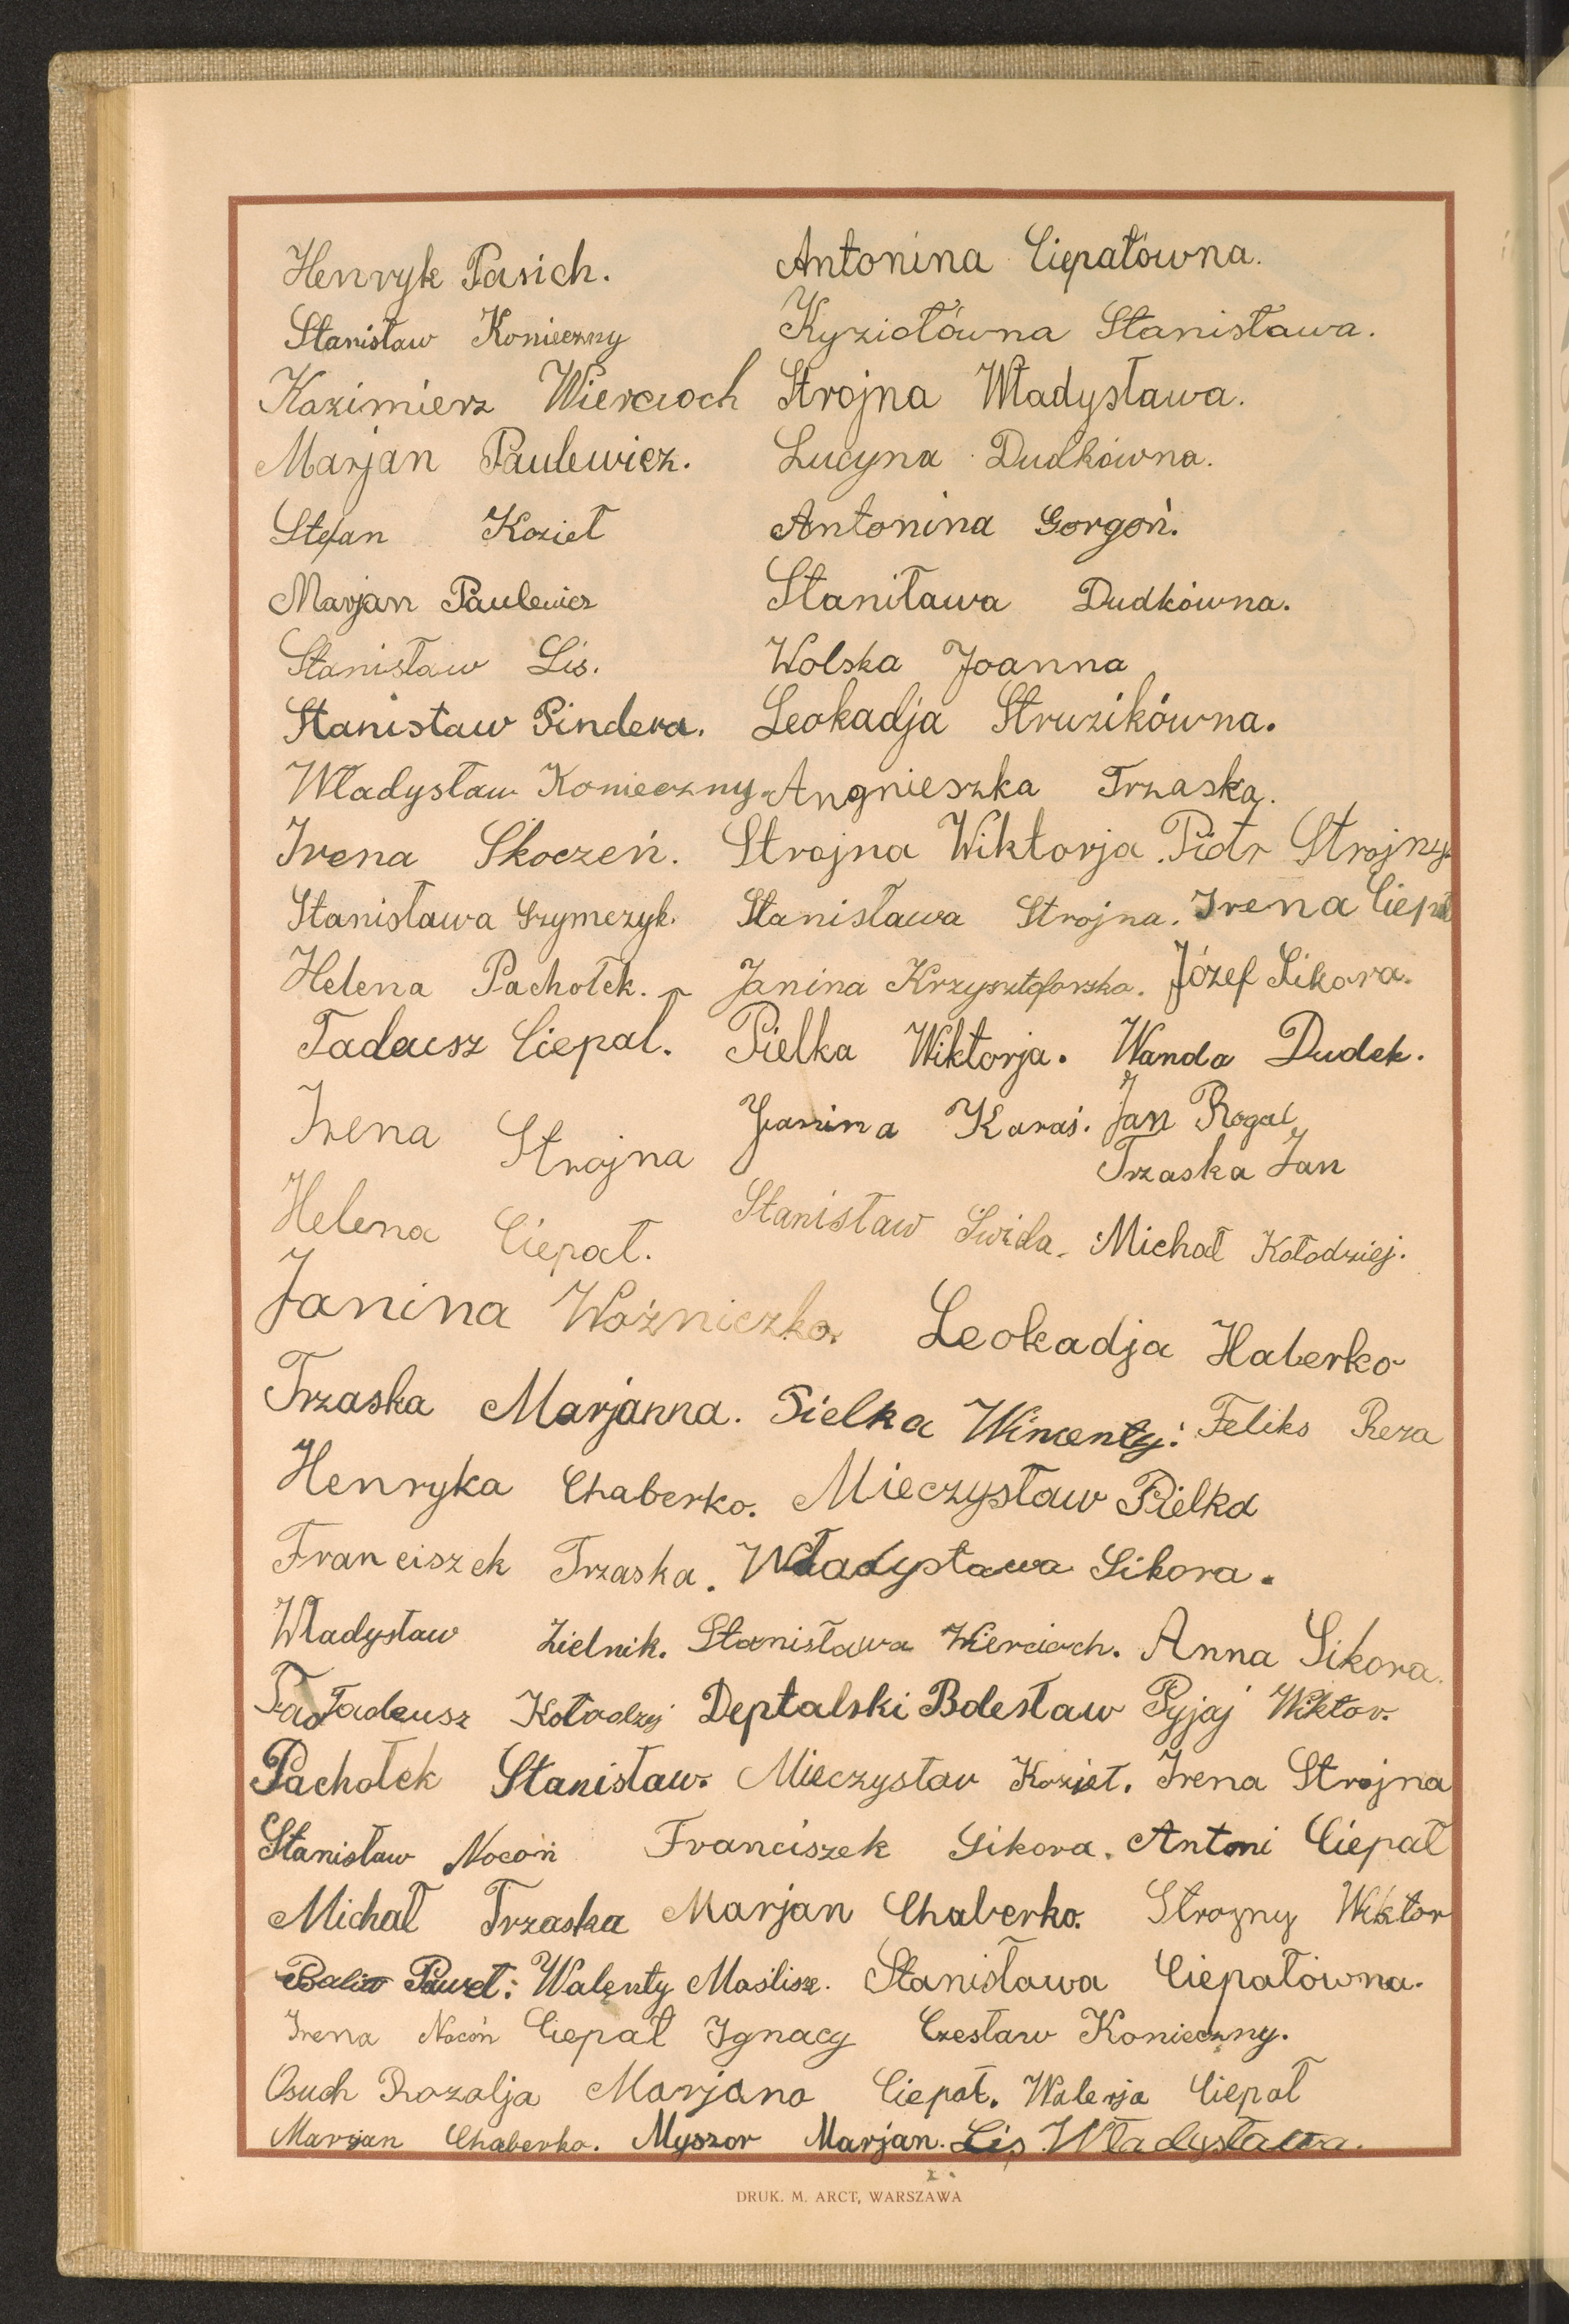 Henryk Pasich. Antonina Ciepałówna.
Stanisław Konieczny Kyziołówna Stanisława.
Kazimierz Wiercioch Strojna Władysława.
Marjan Paulewicz. Lucyna Dudkówna.
Stefan Kozieł Antonina Gorgoń.
Marjan Paulewicz Staniława Dudkówna.
Stanisław Lis. Wolska Joanna
Stanisław Pindera. Leokadja Struzikówna.
Władysław Konieczny. Angnieszka Trzaska.
Irena Skoczeń. Strojna Wiktorja. Piotr Strojny.
Stanisława Szymczyk. Stanisława Strojna. Irena Ciepał
Helena Pachołek. Janina Krzysztoforska. Józef Sikora.
Tadeusz Ciepał. Pielka Wiktorja. Wanda Dudek.
Irena Strojna Janina Karaś. Jan Rogal
Trzaska Jan
Helena Ciepał. Stanisław Swida. Michał Kołodziej.
Janina Woźniczko. Leokadja Haberko
Trzaska Marjanna. Pielka Wincenty. Feliks Reza
Henryka Chaberko. Mieczysław Pielka
Franciszek Trzaska. Władysława Sikora.
Władysław Zielnik. Stanisława Wiercioch. Anna Sikora.
Tad Tadeusz Kołodzij Deptalski Bolesław Pyjaj Wiktor.
Pachołek Stanisław. Mieczysław Kozieł. Irena Strojna
Stanisław Nocoń Franciszek Sikora. Antoni Ciepał
Michał Trzaska Marjan Chaberko. Strojny Wiktor
Paweł: Walenty Maślisz. Stanisława Ciepałówna.
Irena Nocoń Ciepał Ignacy Czesław Konieczny.
Osuch Rozalja Marjana Ciepał. Walerja Ciepał
Marjan Chaberko. Myszor Marjan. Lis Władysława.
DRUK. M. ARCT, WARSZAWA